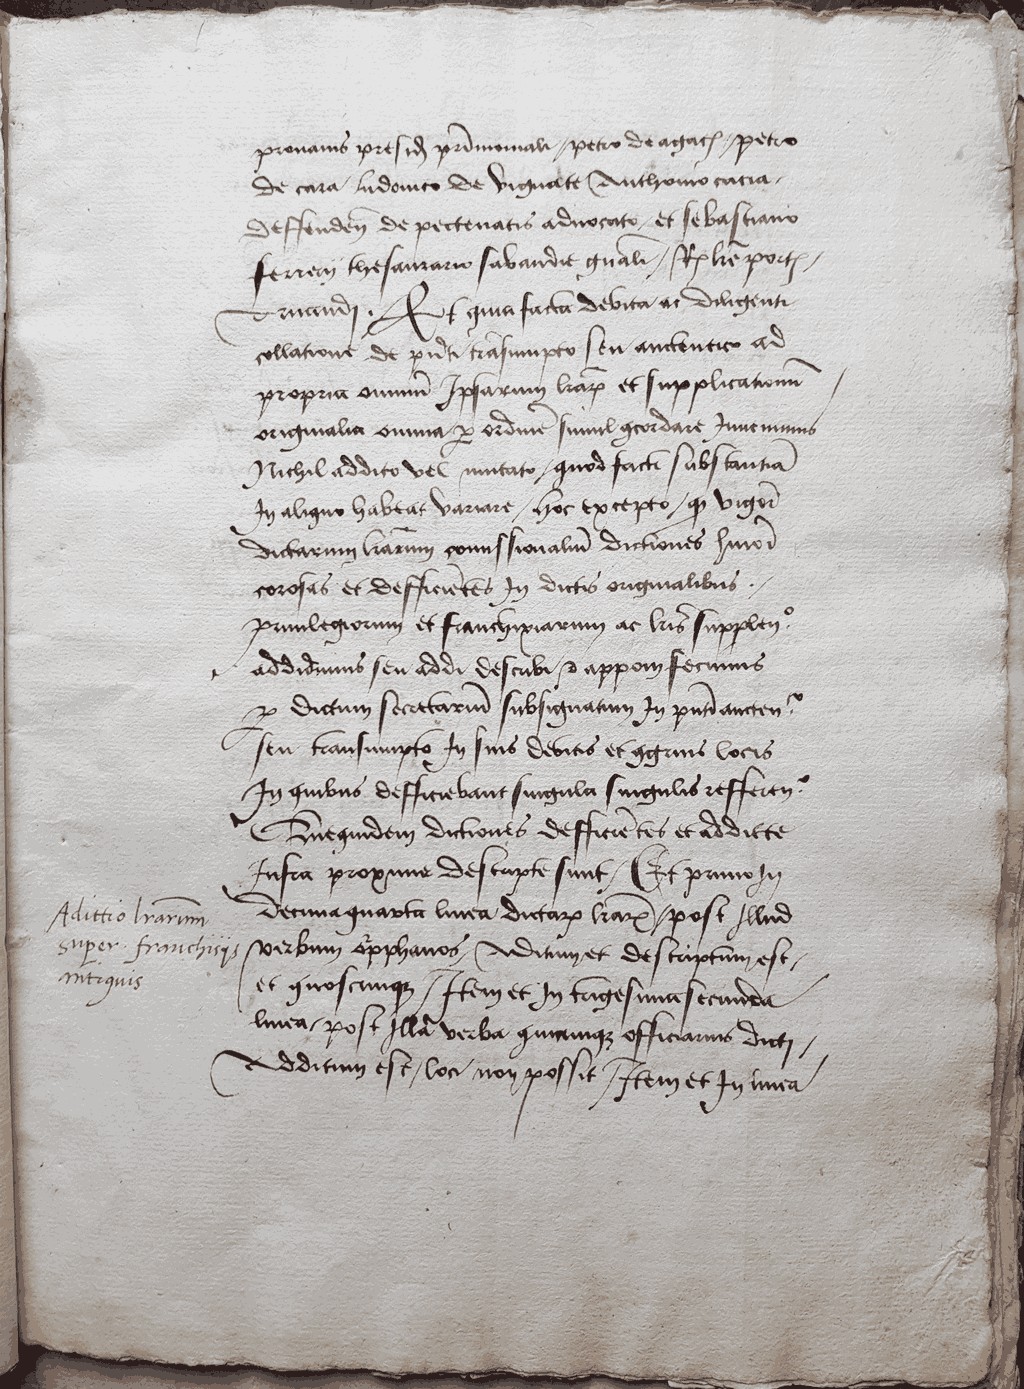 provanis presid prīmomiali / petro de agaci / petro
de cara / ludovico de vignate / Anthonio cacia /
deffenden̄ de pectenatis advocato / et sebastiano
ferrerij thesaurario sabaudie gn̄ali / R l̄re port /
Et quia facta debita ac diligenti
collatione de pn̄ti trāsumpto seu auctentico ad
propria omniū Ipsarum l̄rarꝝ et supplicationū
originalia omnia ꝑ ordinē simul ꝯcordare Invenimus
Nichil addito vel mutato / quod facti substantiā
In aliquo habeat variare / hoc excepto / ꝙ vigorē
dictarum l̄rarum comissionaliū dictiones hmōi
corosas et defficiētes In dictis originalibus
privilegiorum et franchixiarum ac l̄ris supplen̄º
addidimus seu addi describi et apponi fecimus
ꝑ dictum secretariū subsignatum In pn̄ti aucten̄º
seu transumpto In suis debitis et ꝯgruis locis
In quibus defficiebant singula singulis refferen̄º
Quequidem dictiones defficiētes et addicte
Infra proxime descripte sunt / Et primo In
decimaquarta linea dictarꝝ l̄rarꝝ / post Illud
verbum orpphanos / Aditum et descriptum est /
et quoscunqꝫ / Item et In trigesimasecunda
linea / post Illā verba quicunqꝫ officiarius dicti /
Additum est / loci non possit / Item et In linea
Adittio l̄rarum
super franchisijs
antiquis